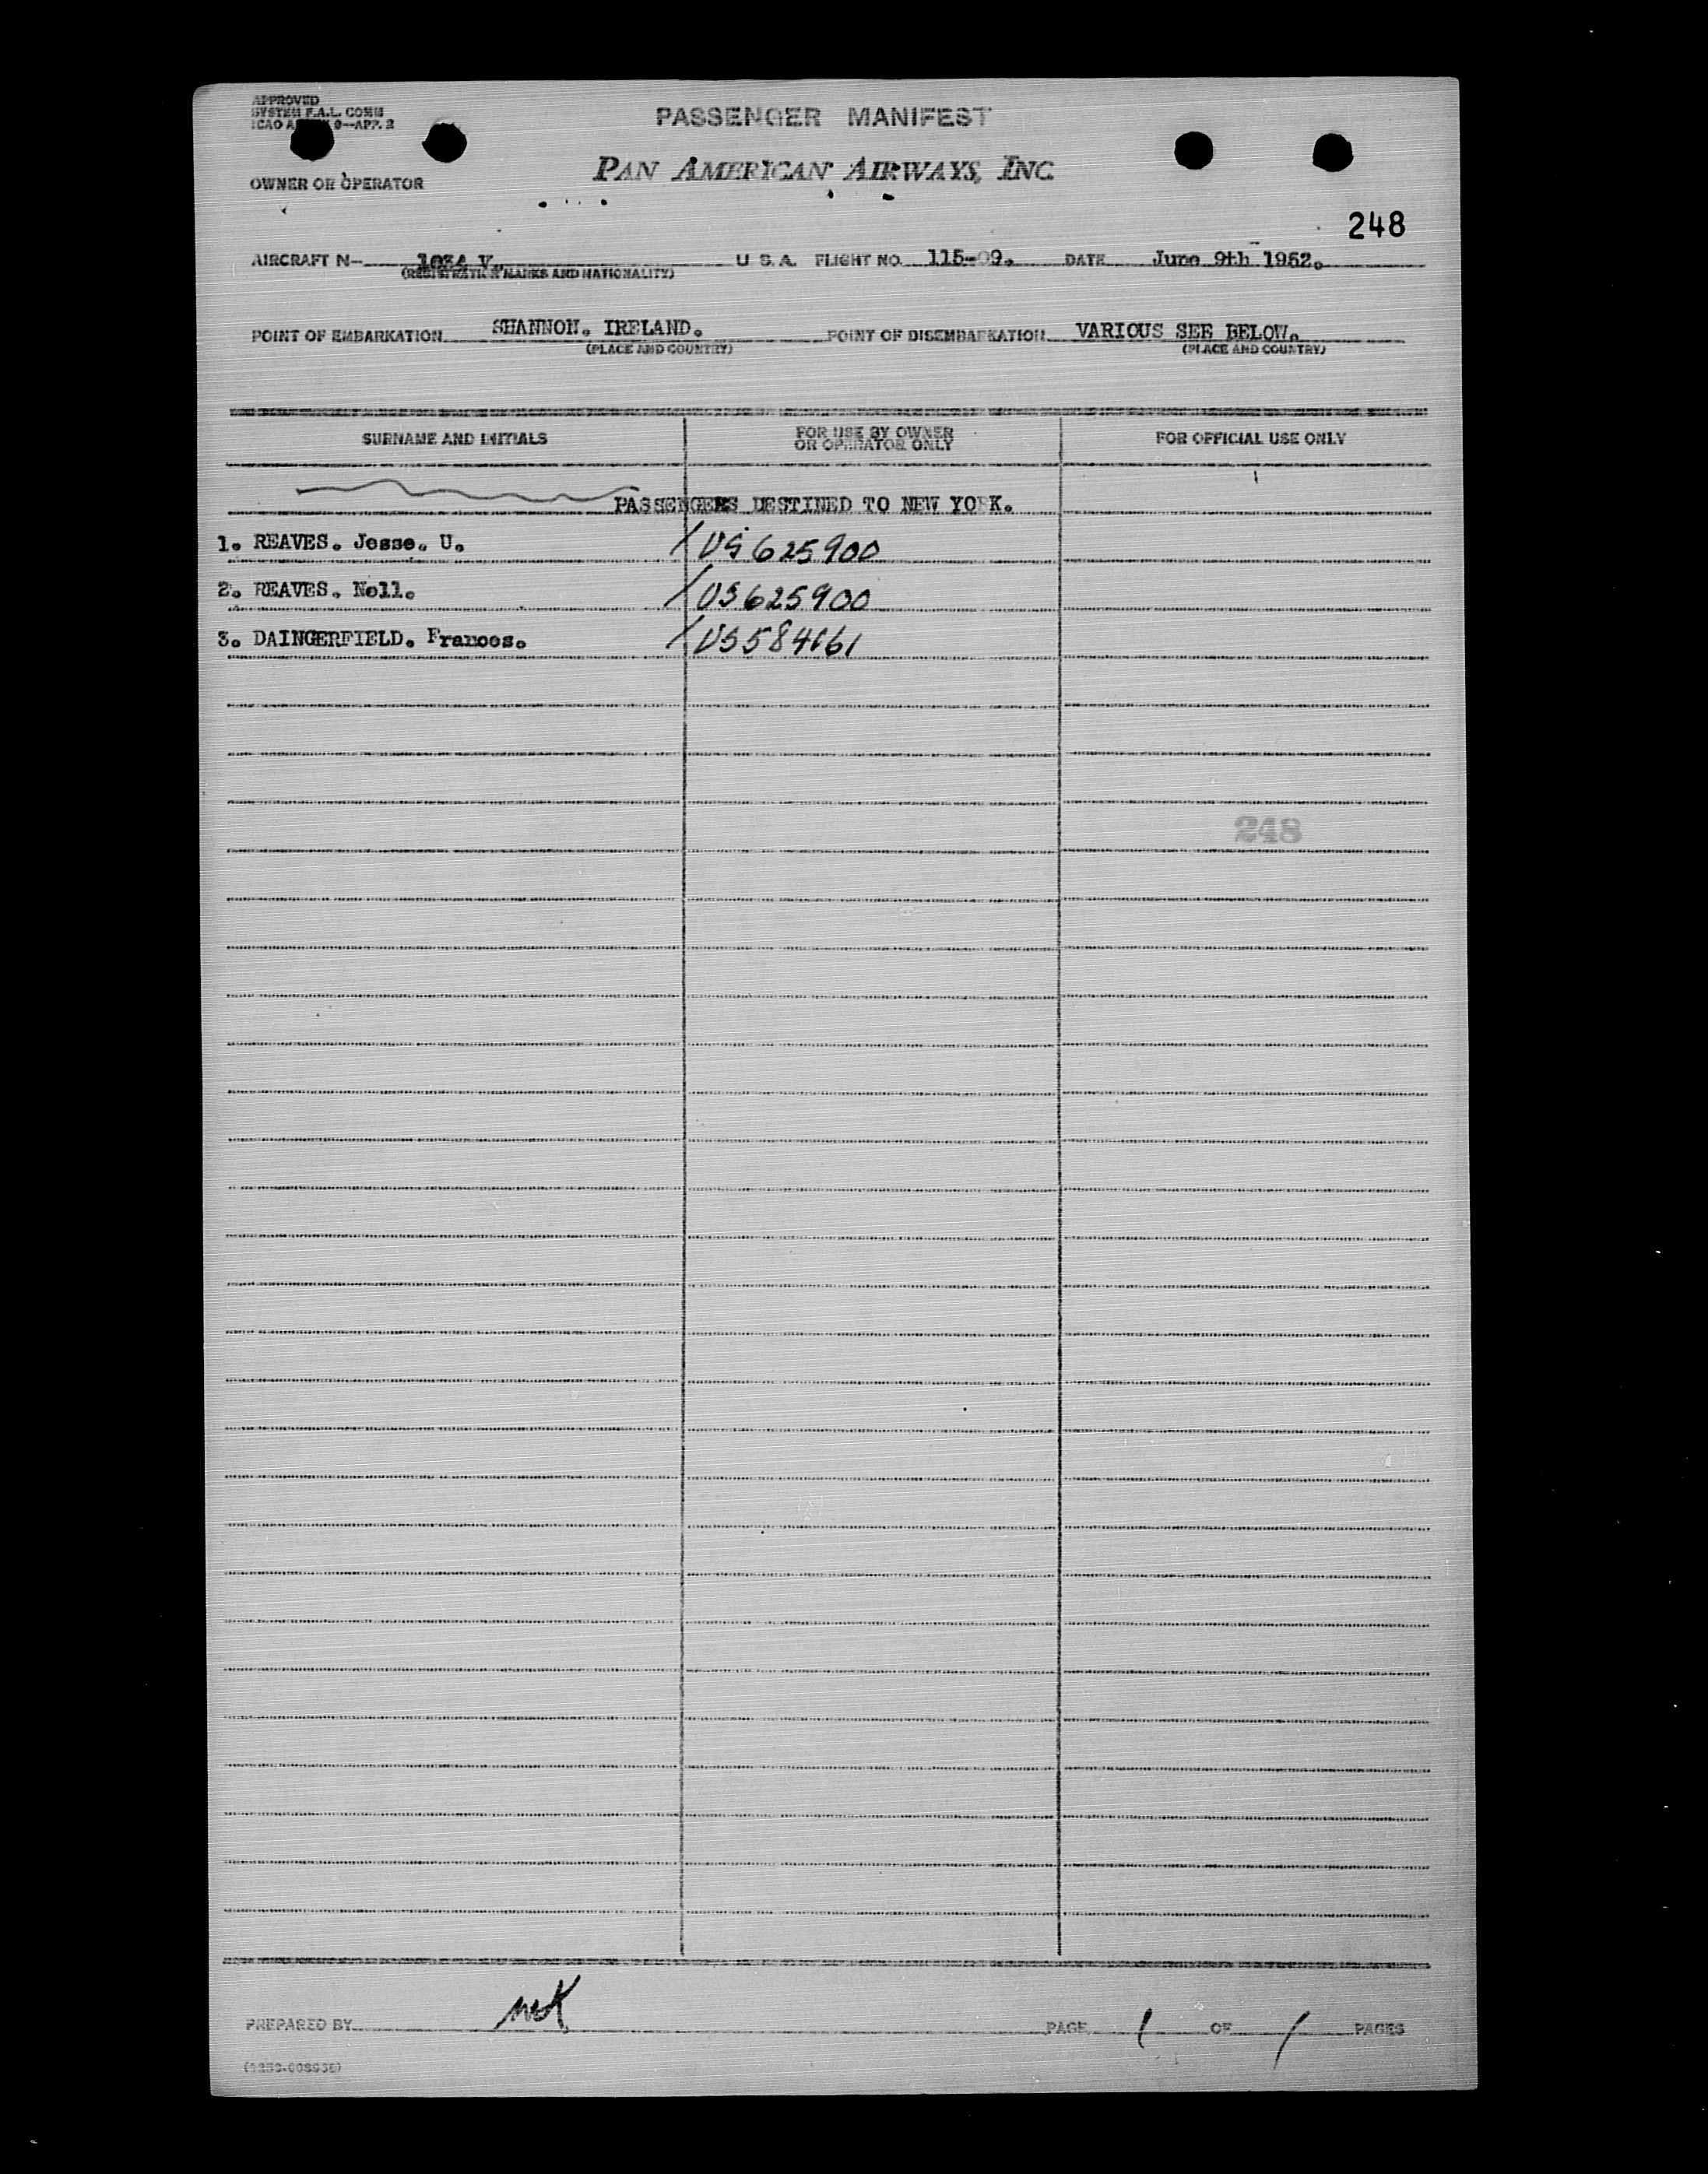 APPROVED
SYSTEM F.A.L. COMM
ICAO 9--APP. 2
PASSENGER MANIFEST
PAN AMERICAN AIRWAYS, INC.
OWNER OR OPERATOR
248
AIRCRAFT N- 1034 V. U. S. A. FLIGHT NO. 115-09. DATE June 9th 1952.
(REGISTRATION MARKS AND NATIONALITY)
POINT OF EMBARKATION SHANNON. IRELAND. POINT OF DISEMBARKATION VARIOUS SEE BELOW.
(PLACE AND COUNTRY) (PLACE AND COUNTRY)
SURNAME AND INITIALS FOR USE BY OWNER OR OPERATOR ONLY FOR OFFICIAL USE ONLY
PASSENGERS DESTINED TO NEW YORK.
1. REAVES. Jesse. U. / US 625900
2. REAVES. Nell. / US 625900
3. DAINGERFIELD. Frances. / US 584661
248
PREPARED BY PAGE 1 OF 1 PAGES